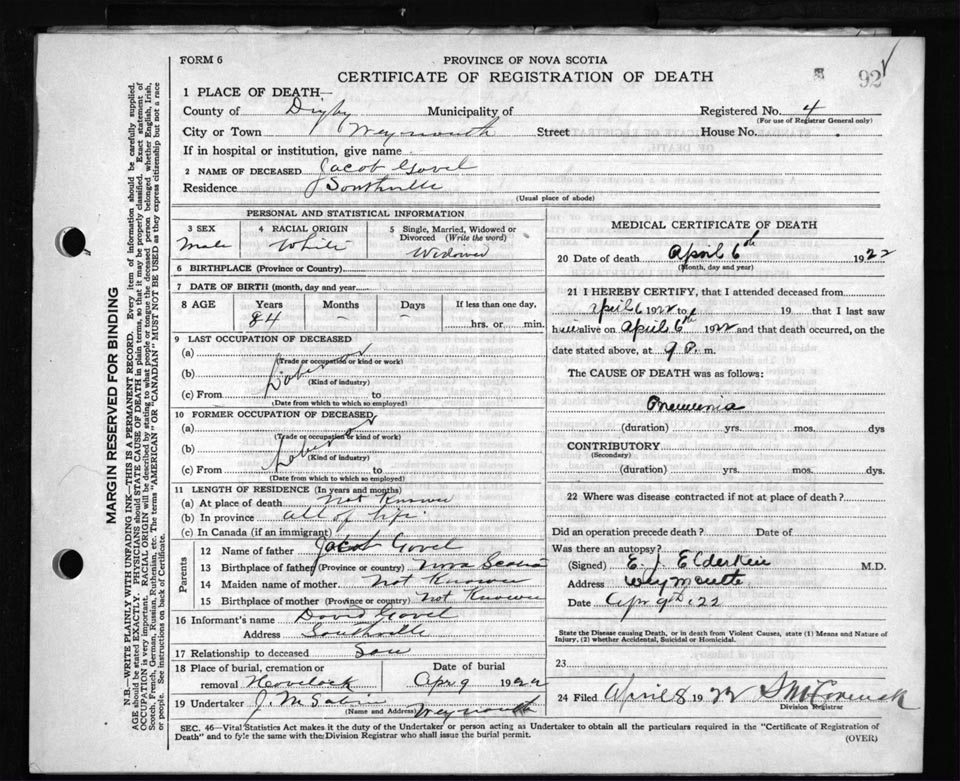 FORM 6
PROVINCE OF NOVA SCOTIA
CERTIFICATE OF REGISTRATION OF DEATH
92
1 PLACE OF DEATH—
County of Digby Municipality of Registered No. 4
(For use of Registrar General only)
City or Town Weymouth Street House No.
If in hospital or institution, give name
2 NAME OF DECEASED Jacob Govel
Residence Southville
(Usual place of abode)
PERSONAL AND STATISTICAL INFORMATION
3 SEX 4 RACIAL ORIGIN 5 Single, Married, Widowed or Divorced (Write the word)
Male White Widower
6 BIRTHPLACE (Province or Country)
7 DATE OF BIRTH (month, day and year)
8 AGE Years Months Days If less than one day,
84 – – hrs. or min.
9 LAST OCCUPATION OF DECEASED
(a)
(Trade or occupation or kind of work)
(b)
(Kind of industry)
(c) From to
(Date from which to which so employed)
10 FORMER OCCUPATION OF DECEASED
(a)
(Trade or occupation or kind of work)
(b)
(Kind of industry)
(c) From to
(Date from which to which so employed)
11 LENGTH OF RESIDENCE (In years and months)
(a) At place of death not Known
(b) In province all of life
(c) In Canada (if an immigrant)
Parents
12 Name of father Jacob Govel
13 Birthplace of father (Province or country) Nova Scotia
14 Maiden name of mother Not Known
15 Birthplace of mother (Province or country) Not Known
16 Informant's name David Govel
Address Southville
17 Relationship to deceased Son
18 Place of burial, cremation or Date of burial
removal Havelock Apr 9 1922
19 Undertaker J. M.
(Name and Address) Weymouth
MEDICAL CERTIFICATE OF DEATH
20 Date of death April 6th 1922
(Month, day and year)
21 I HEREBY CERTIFY, that I attended deceased from
April 6 1922 to 19 that I last saw
him alive on April 6th 1922 and that death occurred, on the
date stated above, at 9 P. m.
The CAUSE OF DEATH was as follows:
Pneumonia
(duration) yrs. mos. dys
CONTRIBUTORY
(Secondary)
(duration) yrs. mos. dys.
22 Where was disease contracted if not at place of death?
Did an operation precede death? Date of
Was there an autopsy?
(Signed) E. J. Elderkin M.D.
Address Weymouth
Date Apr 9th 22
State the Disease causing Death, or in death from Violent Causes, state (1) Means and Nature of
Injury, (2) whether Accidental, Suicidal or Homicidal.
23
24 Filed April 8 1922
Division Registrar
SEC. 46—Vital Statistics Act makes it the duty of the Undertaker or person acting as Undertaker to obtain all the particulars required in the "Certificate of Registration of
Death" and to fyle the same with the Division Registrar who shall issue the burial permit.
(OVER)
MARGIN RESERVED FOR BINDING
N.B.—WRITE PLAINLY WITH UNFADING INK—THIS IS A PERMANENT RECORD. Every item of information should be carefully supplied.
AGE should be stated EXACTLY. PHYSICIANS should STATE CAUSE OF DEATH in plain terms, so that it may be properly classified. Exact statement of
OCCUPATION is very important. RACIAL ORIGIN will be described by stating to what people or tongue the deceased person belonged whether English, Irish,
Scotch, French, German, Russian, Ruthenian, etc. The terms "AMERICAN" OR "CANADIAN" MUST NOT BE USED as they express citizenship but not a race
or people. See instructions on back of Certificate.